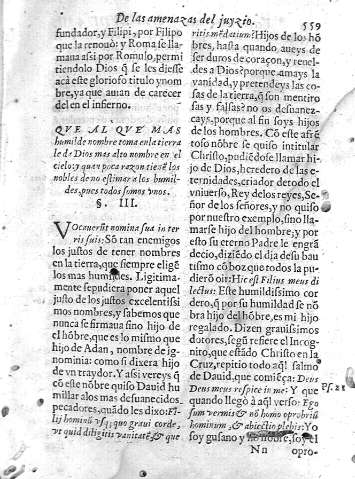 De las amenazas del juyzio.
559
fundador, y Filipi, por Filipo
que la renouò: y Roma se llamaua
assi por Romulo, permi
tiendole Dios q̃ se les diesse
acà este glorioso titulo y nombre,
ya que auian de carecer
del en el infierno.
QVE AL QVE MAS
humilde nombre toma en la tierra
le dà Dios mas alto nombre en el
cielo: y quan poca razon tienẽ los
nobles de no estimar a los humildes,
pues todos somos vnos.
§. III.
Vocauerũt nomina sua in terris
suis: Sõ tan enemigos
los justos de tener nombres
en la tierra, que siempre eligẽ
los mas humildes. Ligitimamente
se pudiera poner aquel
justo de los justos excelentissimos
nombres, y sabemos que
nunca se firmaua sino hijo de
el hõbre, que es lo mismo que
hijo de Adan, nombre de ignominia:
como si dixera hijo
de vn traydor. Y assi vereys q̃
cõ este nõbre quiso Dauid humillar
a los mas desuanecidos
pecadores, quãdo les dixo: Filij
hominũ vsq; quo graui corde,
vt quid diligitis vanitatẽ, & quæritis
mẽdatium? Hijos de los hõbres,
hasta quando aueys de
ser duros de coraçon, y reneldes
a Dios? porque amays la
vanidad, y pretendeys las cosas
de la tierra, q̃ son mentirosas
y falsas? no os desuanezcays,
porque al fin soys hijos
de los hombres. Cõ este afrẽtoso
nõbre se quiso intitular
Christo, pudiẽdose llamar hijo
de Dios, heredero de las eternidades,
criador de todo el
vniuerso, Rey de los reyes, Señor
de los señores, y no quiso
por nuestro exemplo, sino llamarse
hijo del hombre, y por
esto su eterno Padre le engrãdecio,
diziẽdo el dia de su bautismo
cõ boz que todos la pudierõ
oir: Hic est Filius meus dilectus.
Este humildissimo cordero,
q̃ por su humildad se nõbra
hijo del hõbre, es mi hijo
regalado. Dizen grauissimos
dotores, segũ refiere el Incognito,
que estãdo Christo en la
Cruz, repitio todo aql̃ salmo
de Dauid, que comiẽça: Deus
Deus meus respice in me: Y que
Ps. 21
quando llegò à aql̃ verso: Ego
sum vermis & nõ homo opprobriũ
hominum, & abiectio plebis: Yo
soy gusano y no nobre, soy el
Nn
opro-